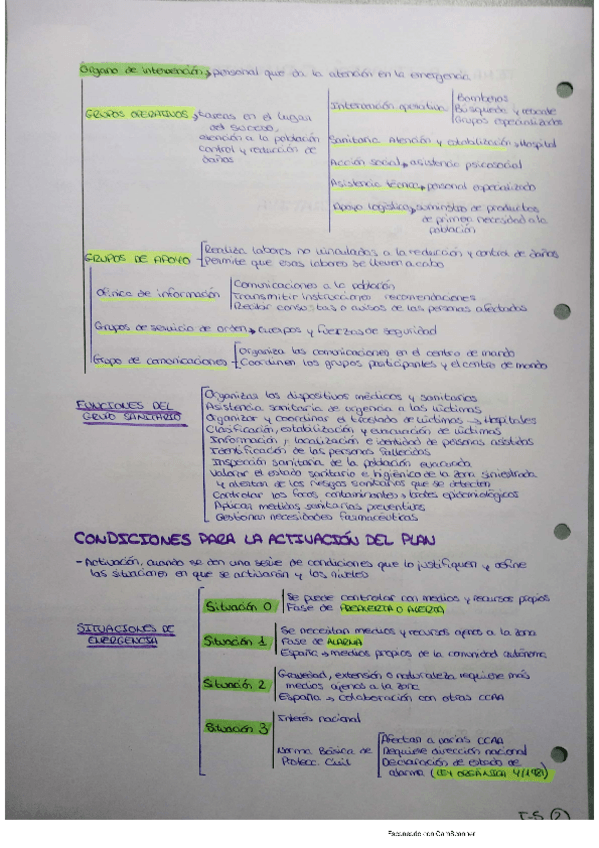 Órgano de intervención → personal que da la atención en la emergencia
GRUPOS OPERATIVOS → tareas en el lugar del suceso, atención a la población control y reducción de daños
Intervención operativa
Bomberos
Búsqueda y rescate
Grupos especializados
Sanitaria Atención y estabilización → Hospital
Acción social → asistencia psicosocial
Asistencia técnica → personal especializado
Apoyo logístico → suministro de productos
de primera necesidad a la
población
GRUPOS DE APOYO
Realiza labores no vinculadas a la reducción y control de daños
Permite que esas labores se lleven a cabo
Oficina de información
Comunicaciones a la población
Transmitir instrucciones recomendaciones
Recibir consultas o avisos de las personas afectadas
Grupos de servicio de orden → cuerpos y fuerzas de seguridad
Grupo de comunicaciones
Organiza las comunicaciones en el centro de mando
Coordinen los grupos participantes y el centro de mando
FUNCIONES DEL
GRUPO SANITARIO
Organizar los dispositivos médicos y sanitarios
Asistencia sanitaria de urgencia a las víctimas
Organizar y coordinar el traslado de víctimas → Hospitales
Clasificación, estabilización y evacuación de víctimas
Información, localización e identidad de personas asistidas
Identificación de las personas fallecidas
Inspección sanitaria de la población evacuada
Valorar el estado sanitario e higiénico de la zona siniestrada
y alertan de los riesgos sanitarios que se detecten
Controlar los focos contaminantes → brotes epidemiológicos
Aplicar medidas sanitarias preventivas
Gestionar necesidades farmacéuticas
CONDICIONES PARA LA ACTIVACIÓN DEL PLAN
- Activación, cuando se dan una serie de condiciones que lo justifiquen y define
las situaciones en que se activarán y los niveles
SITUACIONES DE
EMERGENCIA
Situación 0
Se puede controlar con medios y recursos propios
Fase de PREALERTA O ALERTA
Situación 1
Se necesitan medios y recursos ajenos a la zona
Fase de ALARMA
España → medios propios de la comunidad autónoma
Situación 2
Gravedad, extensión o naturaleza requiere más
medios ajenos a la zona
España → colaboración con otras CCAA
Situación 3
Interés nacional
Norma Básica de
Protecc. Civil
Afectan a varias CCAA
Requiere dirección nacional
Declaración de estado de
alarma (LEY ORGÁNICA 4/1981)
T-5 (2)
Escaneado con CamScanner